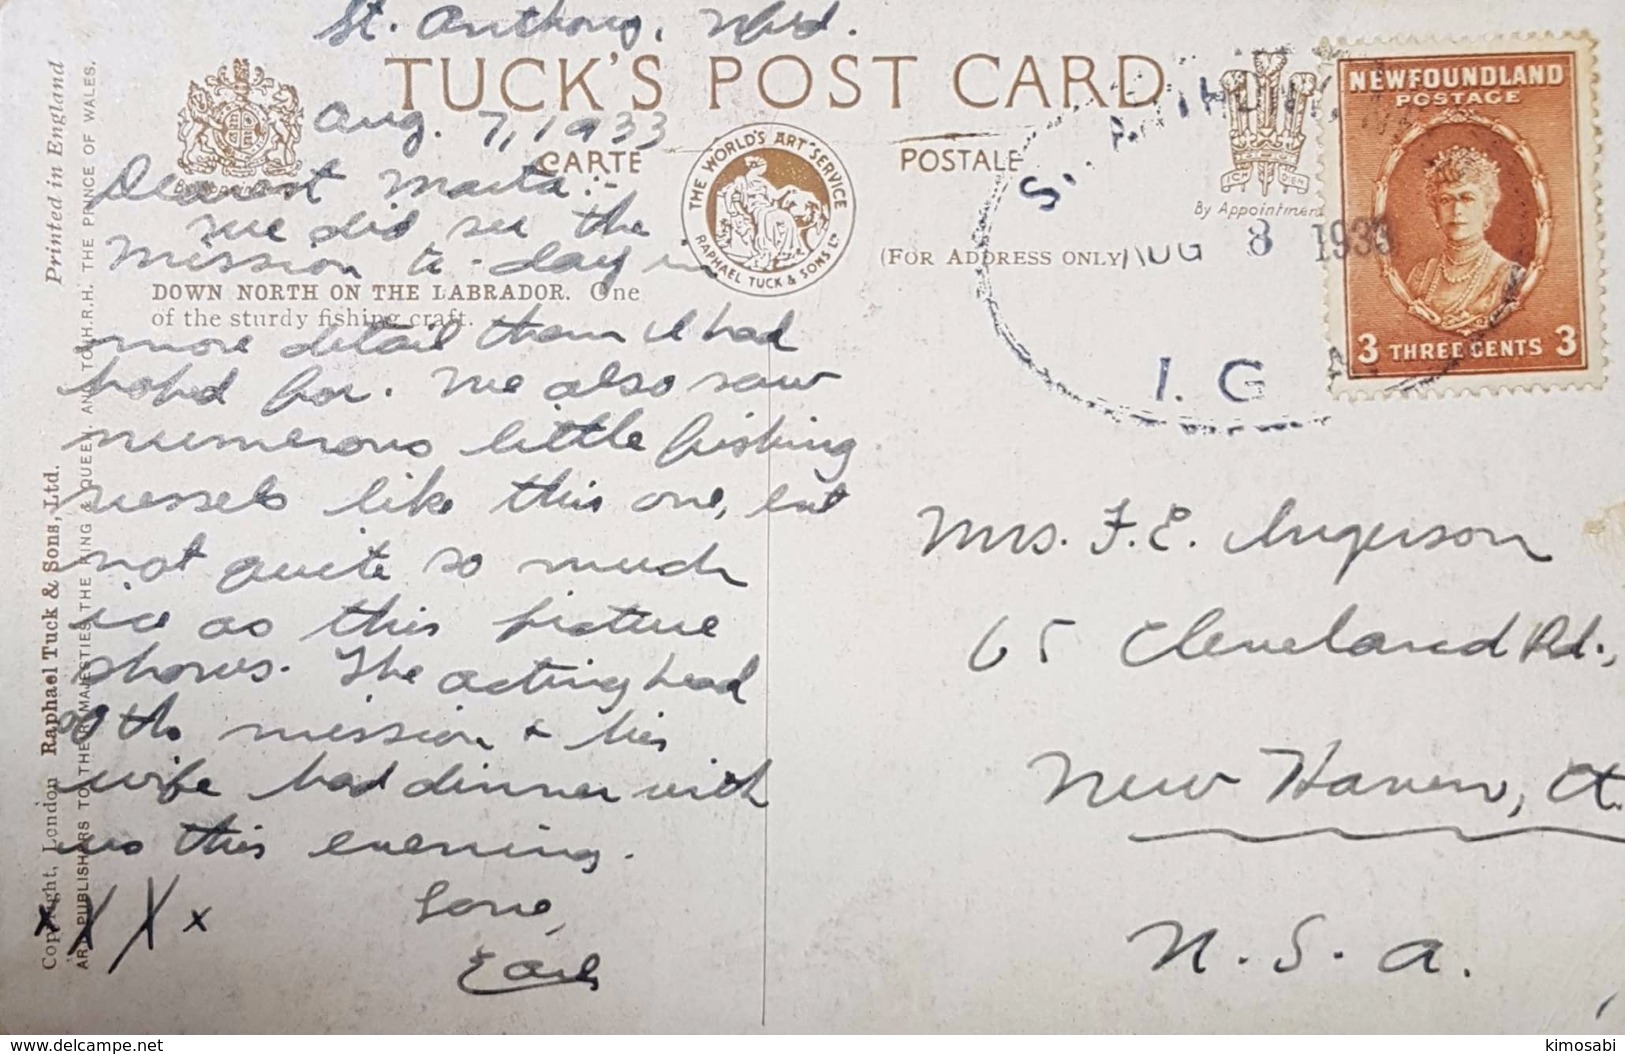 St. Anthony, Nfld.
TUCK'S POST CARD
Aug. 7, 1933
CARTE POSTALE
By Appointment
THE WORLD'S ART SERVICE
RAPHAEL TUCK & SONS LTD
By Appointment
(FOR ADDRESS ONLY)
Dearest Marta:-
We did see the
Mission to-day in
DOWN NORTH ON THE LABRADOR. One
of the sturdy fishing craft.
more detail than I had
hoped for. We also saw
numerous little fishing
vessels like this one, but
not quite so much
ice as this picture
shows. The acting head
of the mission & his
wife had dinner with
us this evening.
Love,
Earl
x X X x
Printed in England
Copyright, London Raphael Tuck & Sons, Ltd.
ART PUBLISHERS TO THEIR MAJESTIES THE KING & QUEEN AND TO H.R.H. THE PRINCE OF WALES.
AUG 8 1933
NEWFOUNDLAND
POSTAGE
3 THREE CENTS 3
Mrs. F. E. Ingerson
65 Cleveland Rd.,
New Haven, Ct.
U. S. A.
www.delcampe.net
kimosabi